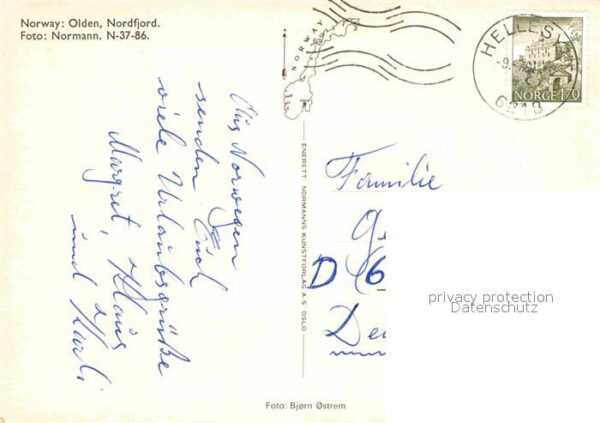 Norway: Olden, Nordfjord.
Foto: Normann. N-37-86.
NORWAY
HELLESYLT
-9.
6218
NORGE 170
Aus Norwegen
senden Euch
viele Urlaubsgrüße
Margret, Klaus
und Karli
ENERETT: NORMANNS KUNSTFORLAG A/S, OSLO
Familie
D 6
De
privacy protection
Datenschutz
Foto: Bjørn Østrem